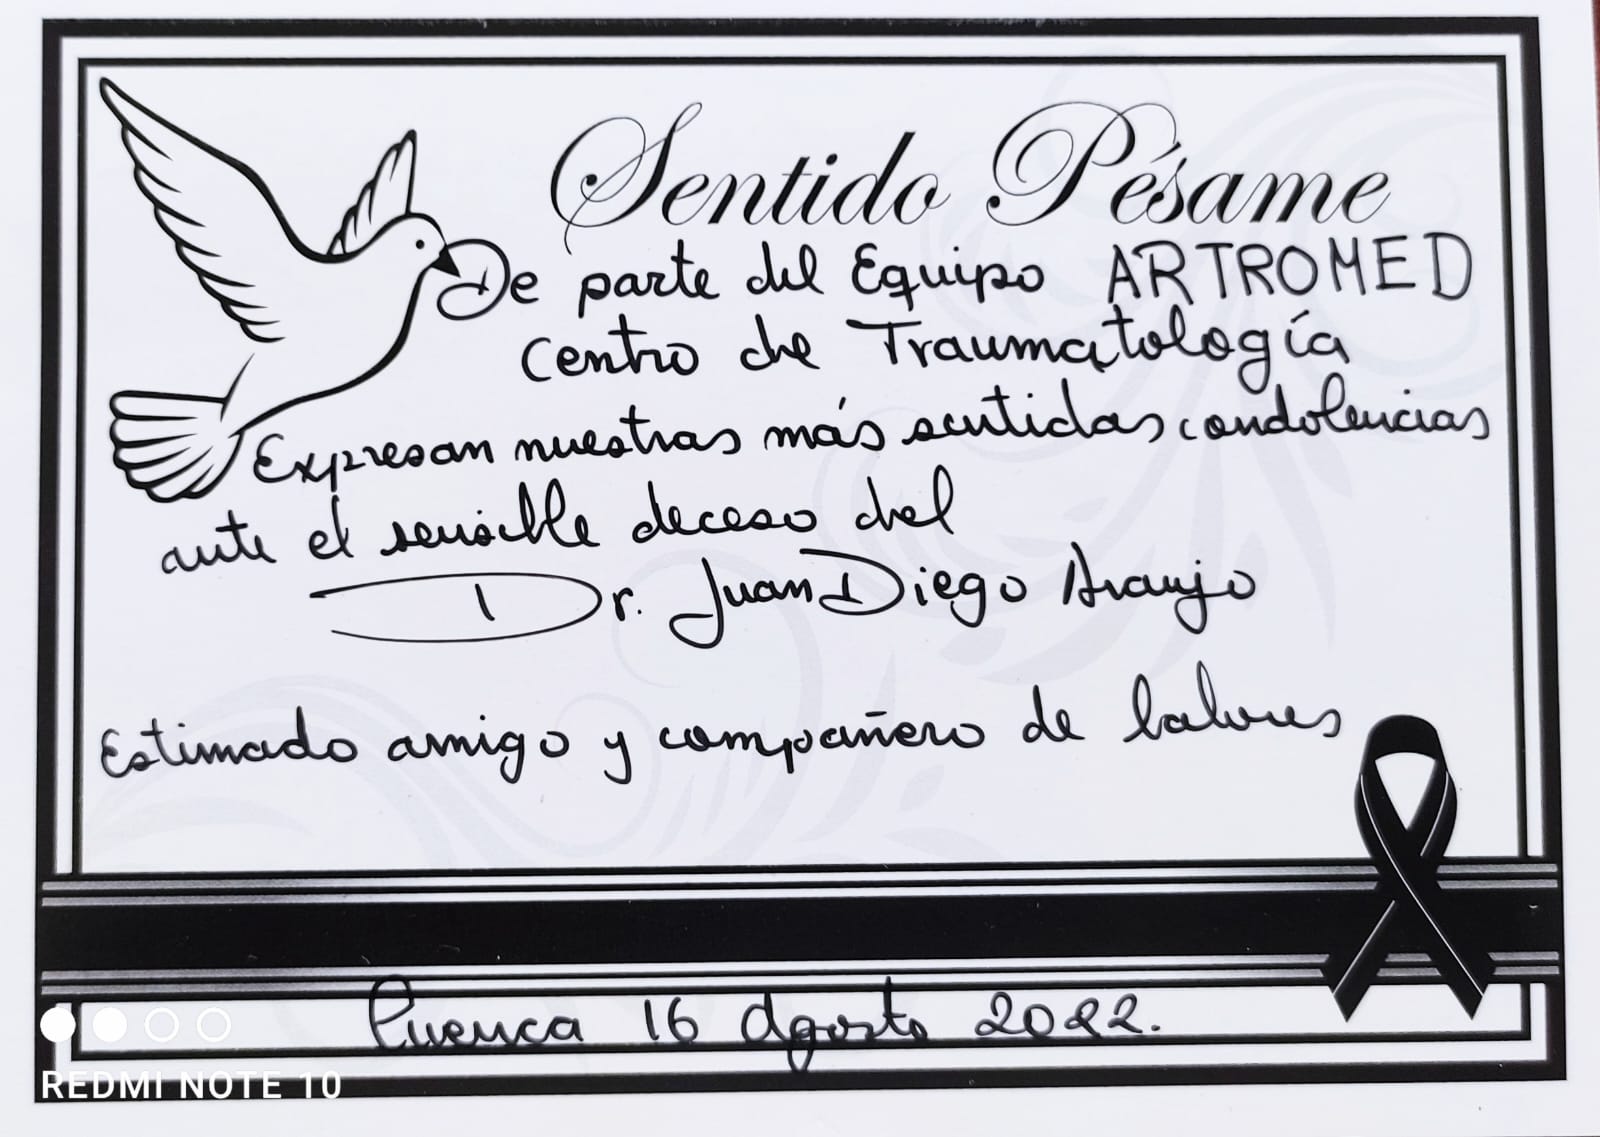 Sentido Pésame
De parte del Equipo ARTROMED
Centro de Traumatología
Expresan nuestras más sentidas condolencias
ante el sensible deceso del
Dr. Juan Diego Araujo
Estimado amigo y compañero de labores
Cuenca 16 Agosto 2022.
REDMI NOTE 10